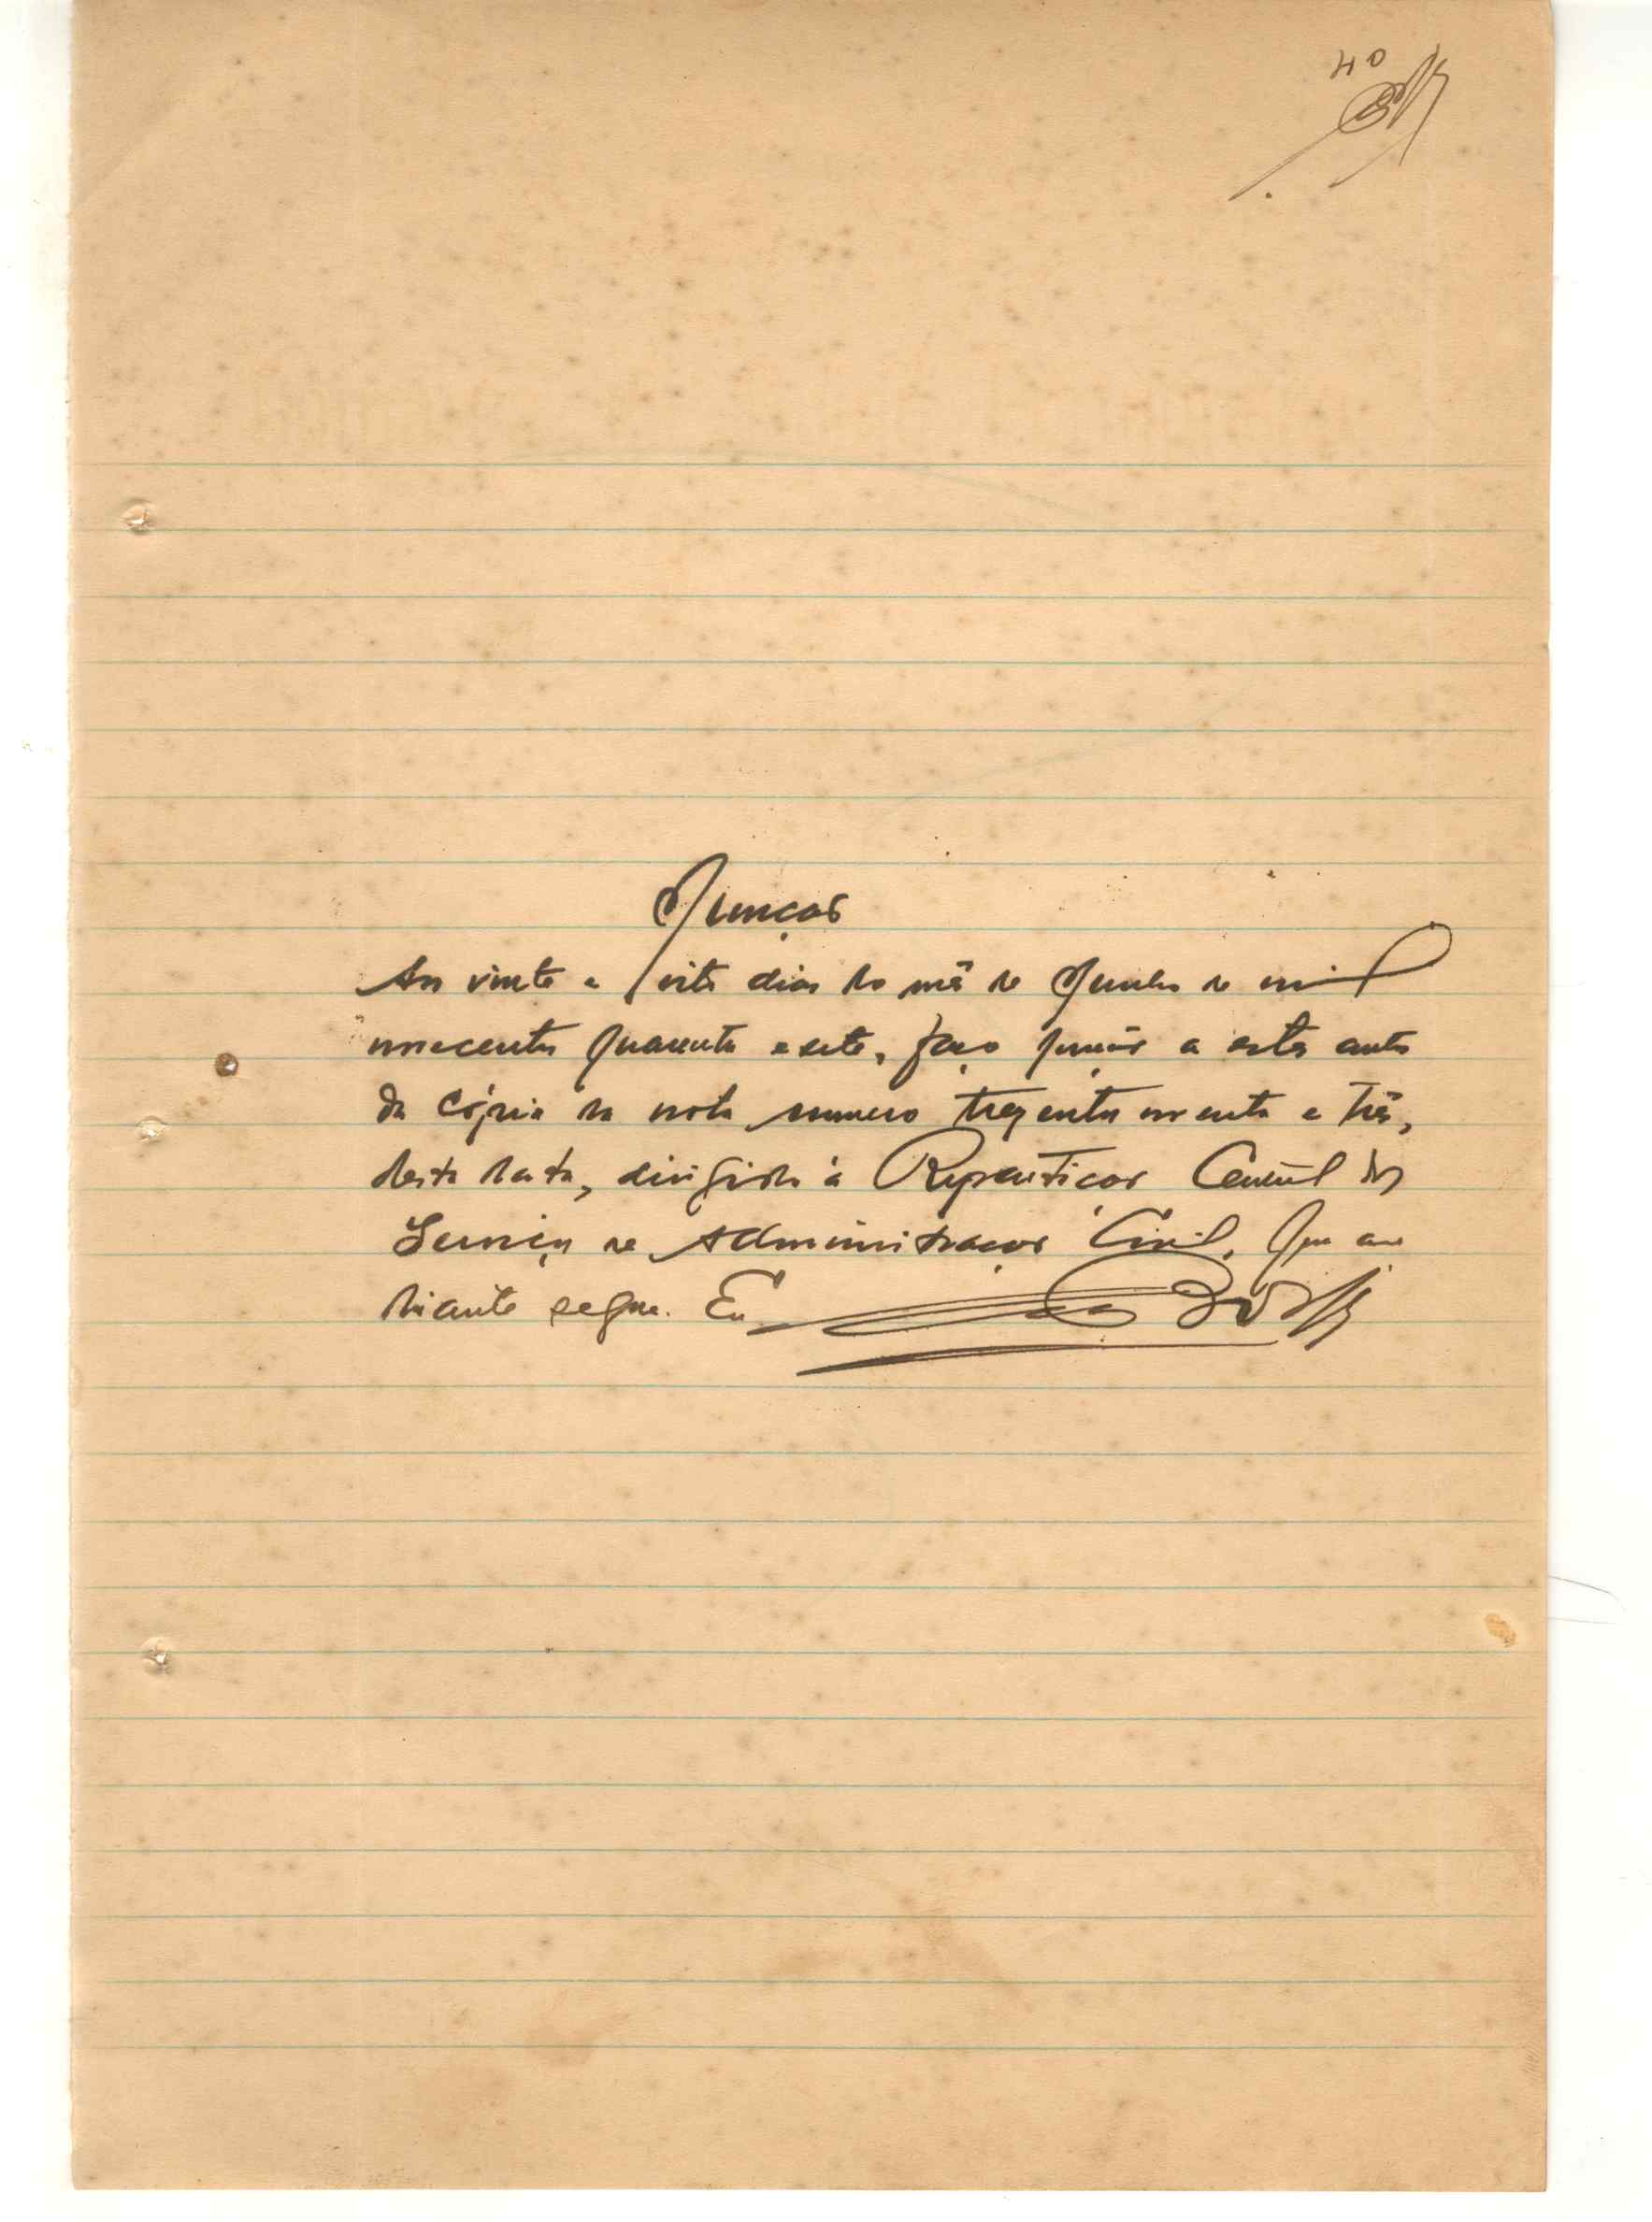 40
Junção
Aos vinte e oito dias do mês de Junho de mil
novecentos quarenta e sete, faço juncão a estes autos
da cópia da nota numero trezentos noventa e três,
desta data, dirigida á Repartição Central dos
Serviços de Administração Civil, que a
diante segue. Eu